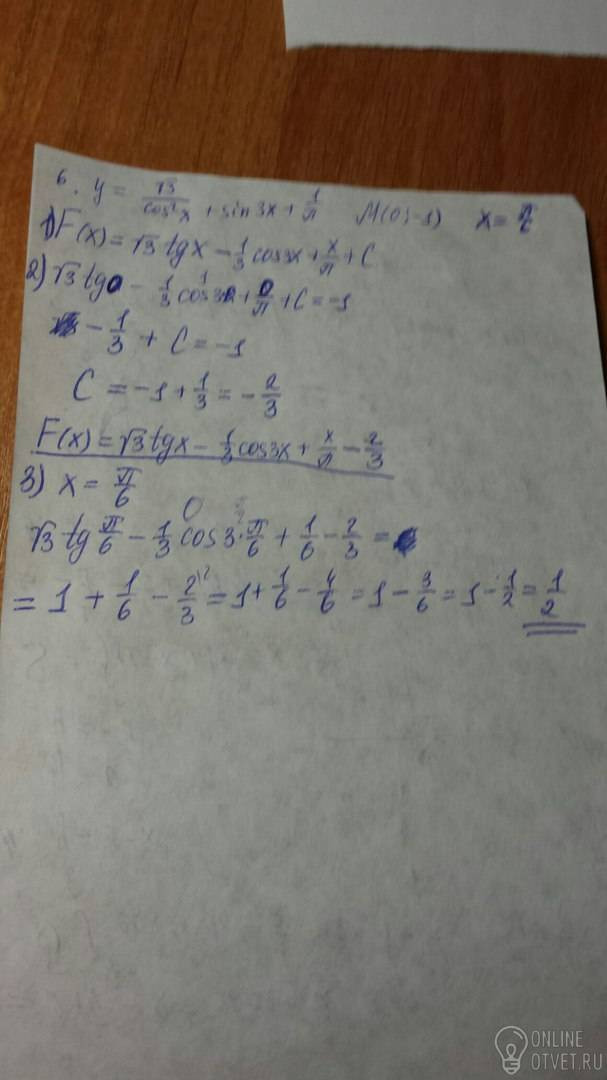 6. y = √3/cos²x + sin3x + 1/π M(0; -1) x =
1) F(x) = √3 tgx - 1/3 cos3x + x/π + C
2) √3 tg0 - 1/3 cos30 + 0/π + C = -1
- 1/3 + C = -1
C = -1 + 1/3 = -2/3
F(x) = √3 tgx - 1/3 cos3x + x/π - 2/3
3) x = π/6
√3 tg π/6 - 1/3 cos3·π/6 + 1/6 - 2/3 =
= 1 + 1/6 - 2/3 = 1 + 1/6 - 4/6 = 1 - 3/6 = 1 - 1/2 = 1/2
ONLINE
OTVET.RU